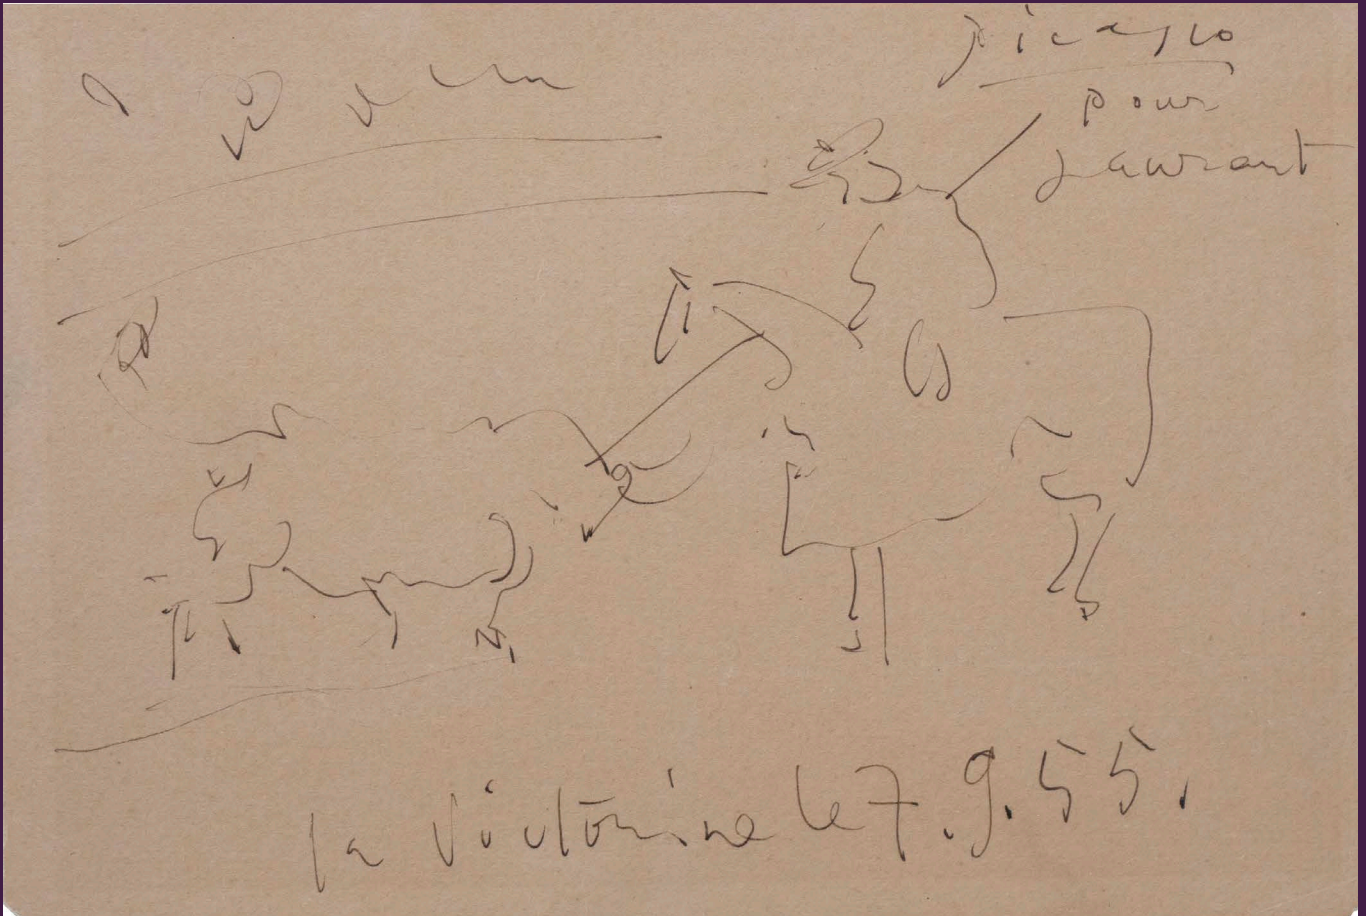 Picasso
pour
Laurant
la Victorine le 7.9.55.